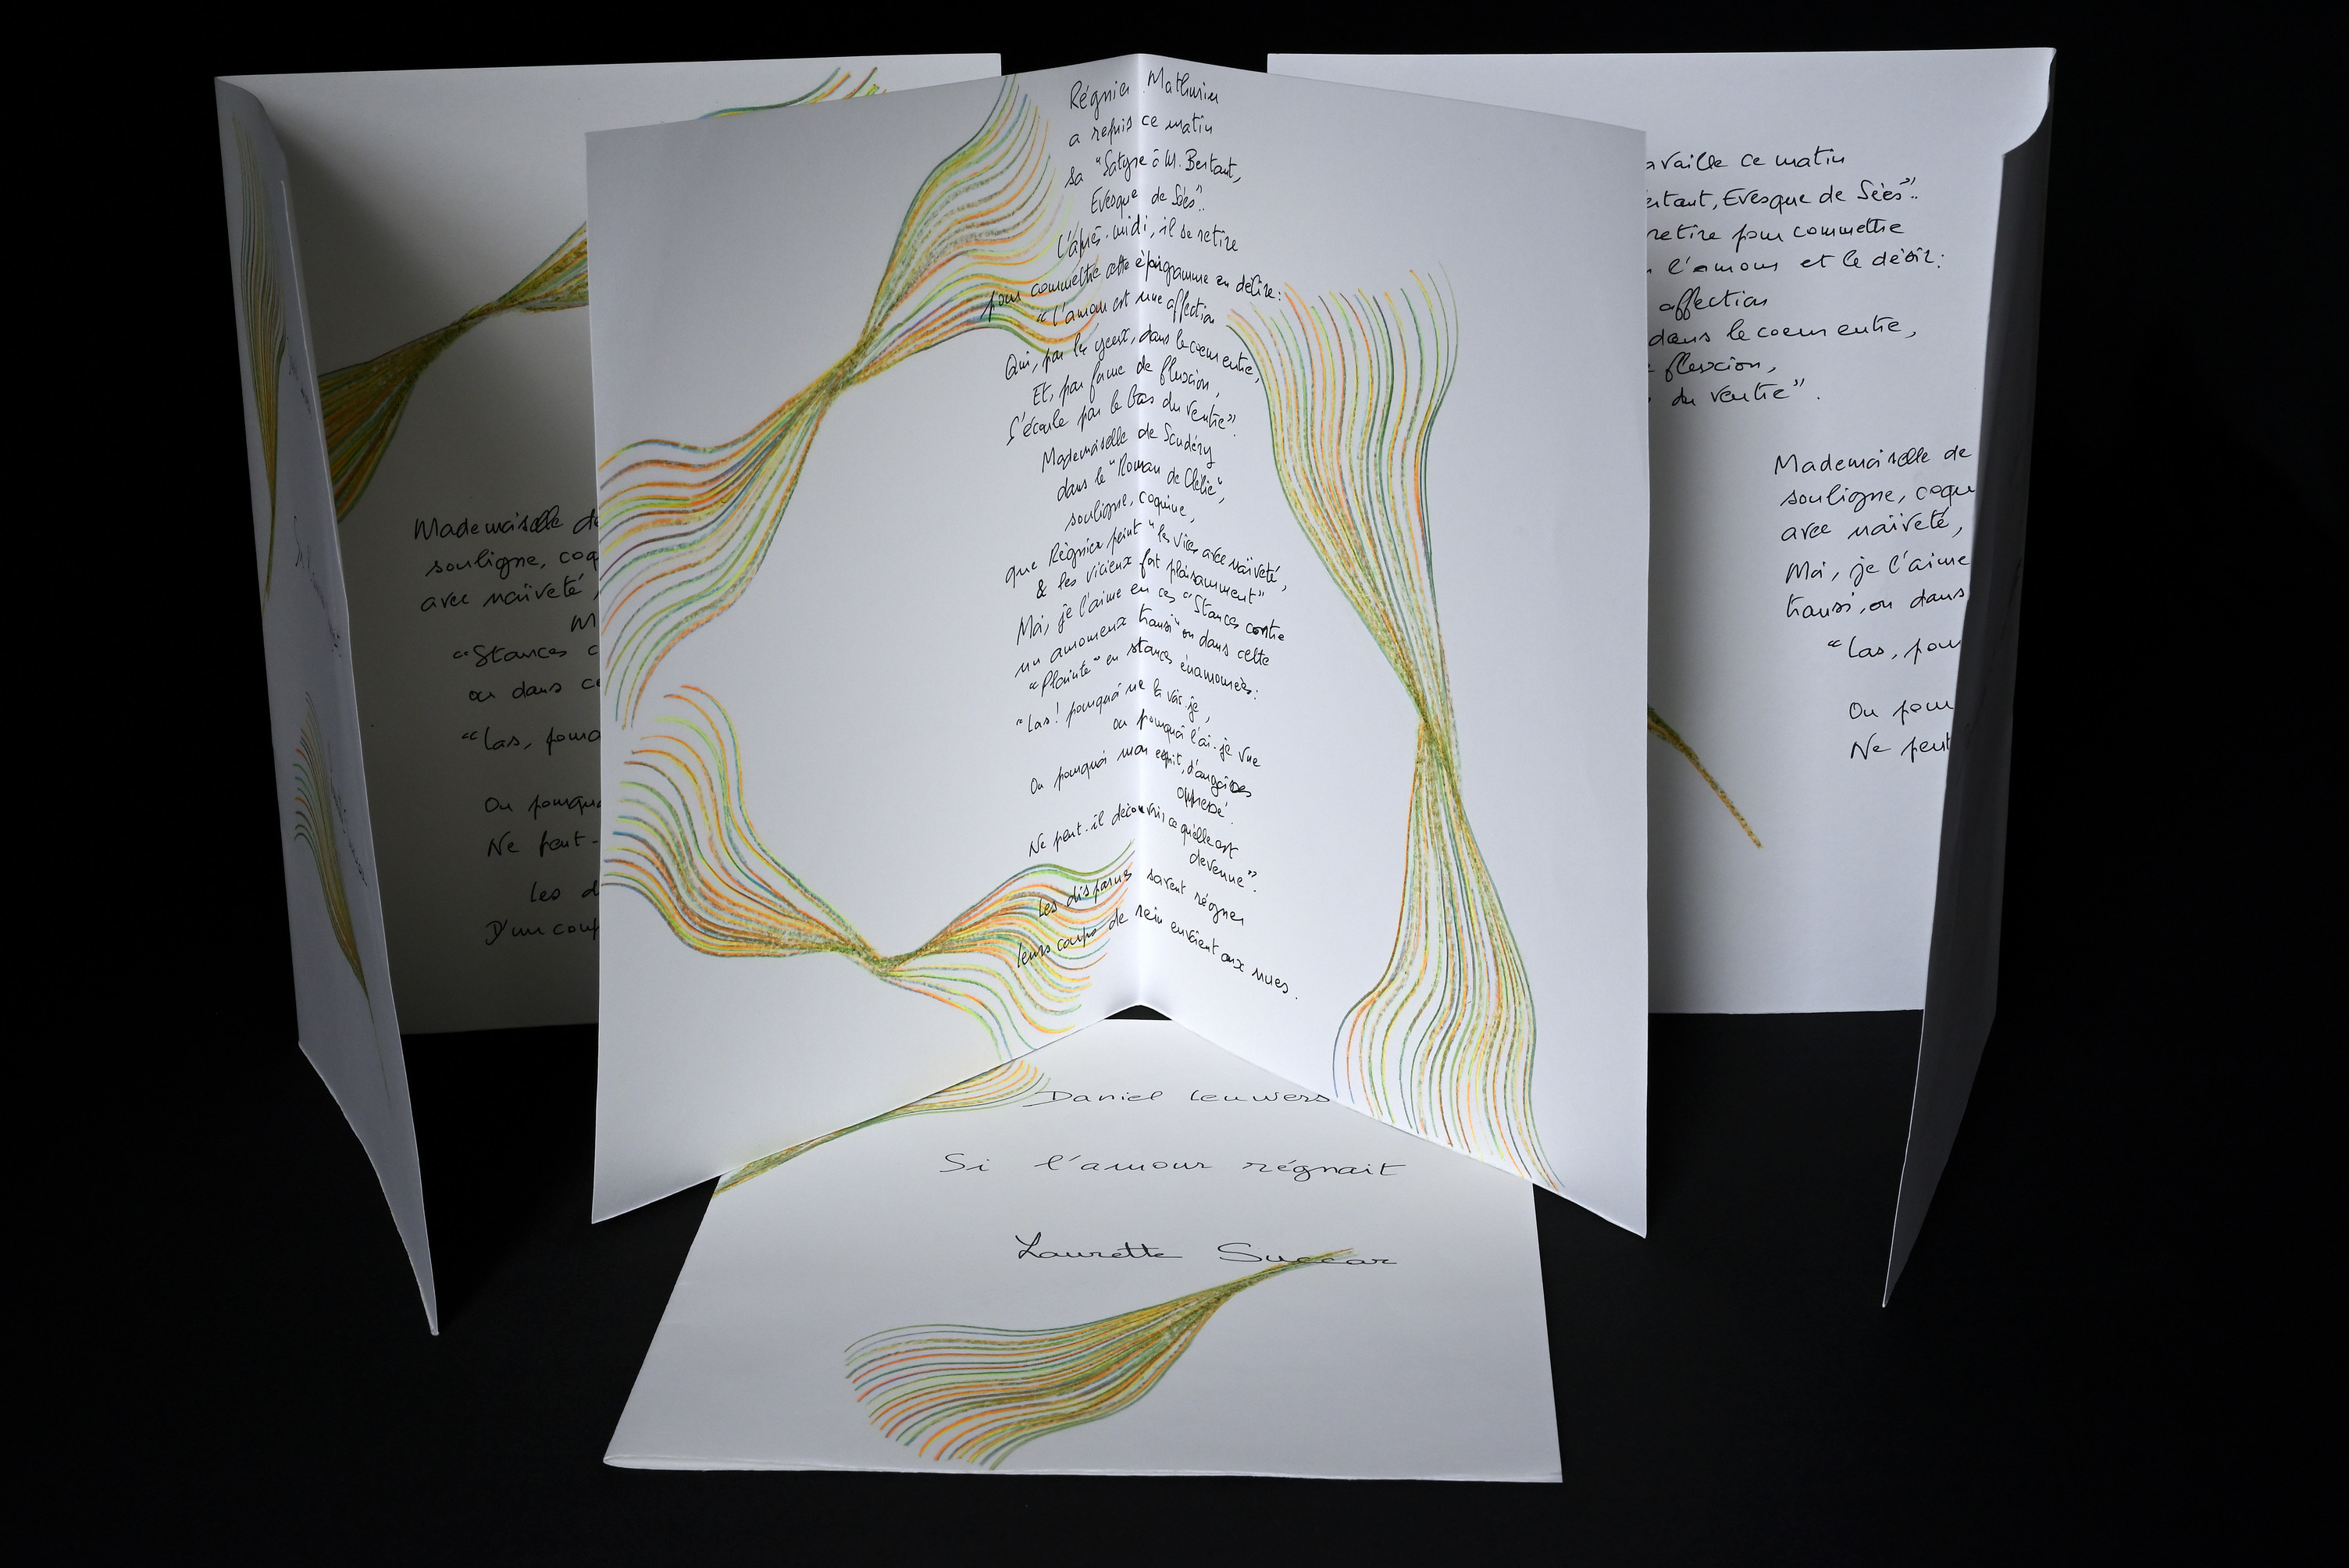 Régnier Mathurin
a repris ce matin
sa "Satyre à M. Bertaut,
Evesque de Sées".
L'après-midi, il se retire
pour commettre cette épigramme en délire:
"L'amour est une affection
Qui, par les yeux, dans le coeur entre,
Et, par forme de fluxion,
S'écoule par le bas du ventre".
Mademoiselle de Scudéry
dans le "Roman de Clélie",
souligne, coquine,
que Régnier peint "les vices avec naïveté,
& les vicieux fort plaisamment"
Moi, je l'aime en ces "Stances contre
un amoureux transi" ou dans cette
"Plainte" en stances énamourées:
"Las! pourquoi ne la vois-je,
ou pourquoi l'ai-je vue
Ou pourquoi mon esprit, d'angoisses
oppressé.
Ne peut-il découvrir ce qu'elle est
devenue".
Les disparus savent régner
leurs coups de rein envoient aux nues.
Mademoiselle de
souligne, coq
avec naïveté,
M
"Stances c
ou dans ce
"Las, pourq
Ou pourquo
Ne peut-
Les d
D'un coup
availle ce matin
ertaut, Evesque de Sées".
retire pour commettre
l'amour et le désir:
affection
dans le coeur entre,
fluxion,
du ventre".
Mademoiselle de
souligne, coqu
avec naïveté,
Moi, je l'aime
transi, ou dans
"Las, pou
Ou pour
Ne peut
Daniel Leuwers
Si l'amour régnait
Laurette Succar